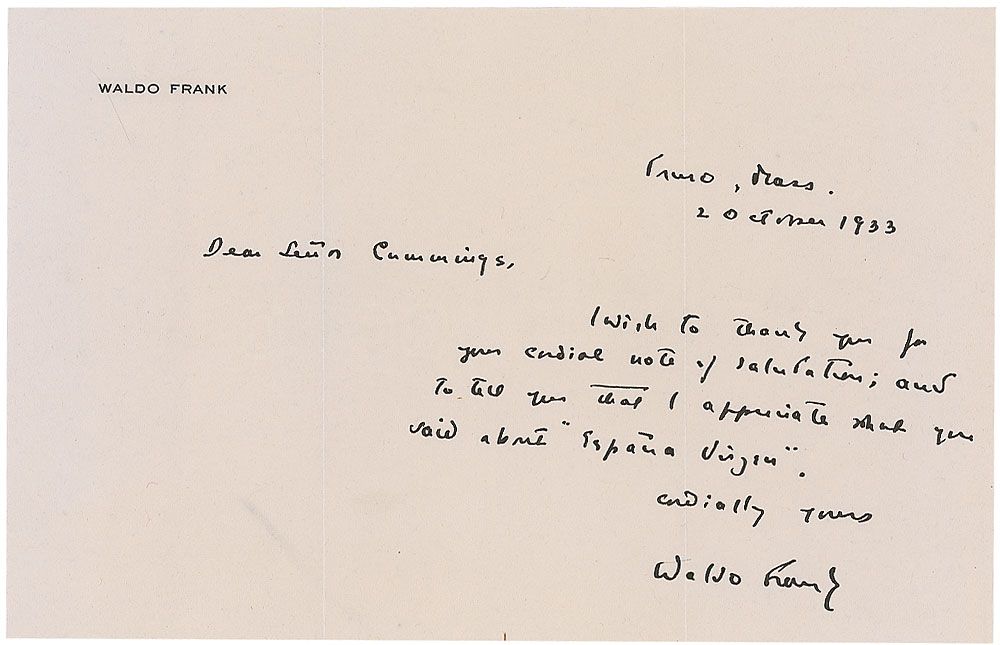 WALDO FRANK
Truro, Mass.
2 October 1933
Dear Señor Cummings,
I wish to thank you for
your cordial note of salutation; and
to tell you that I appreciate what you
said about "España Virgen".
cordially yours
Waldo Frank